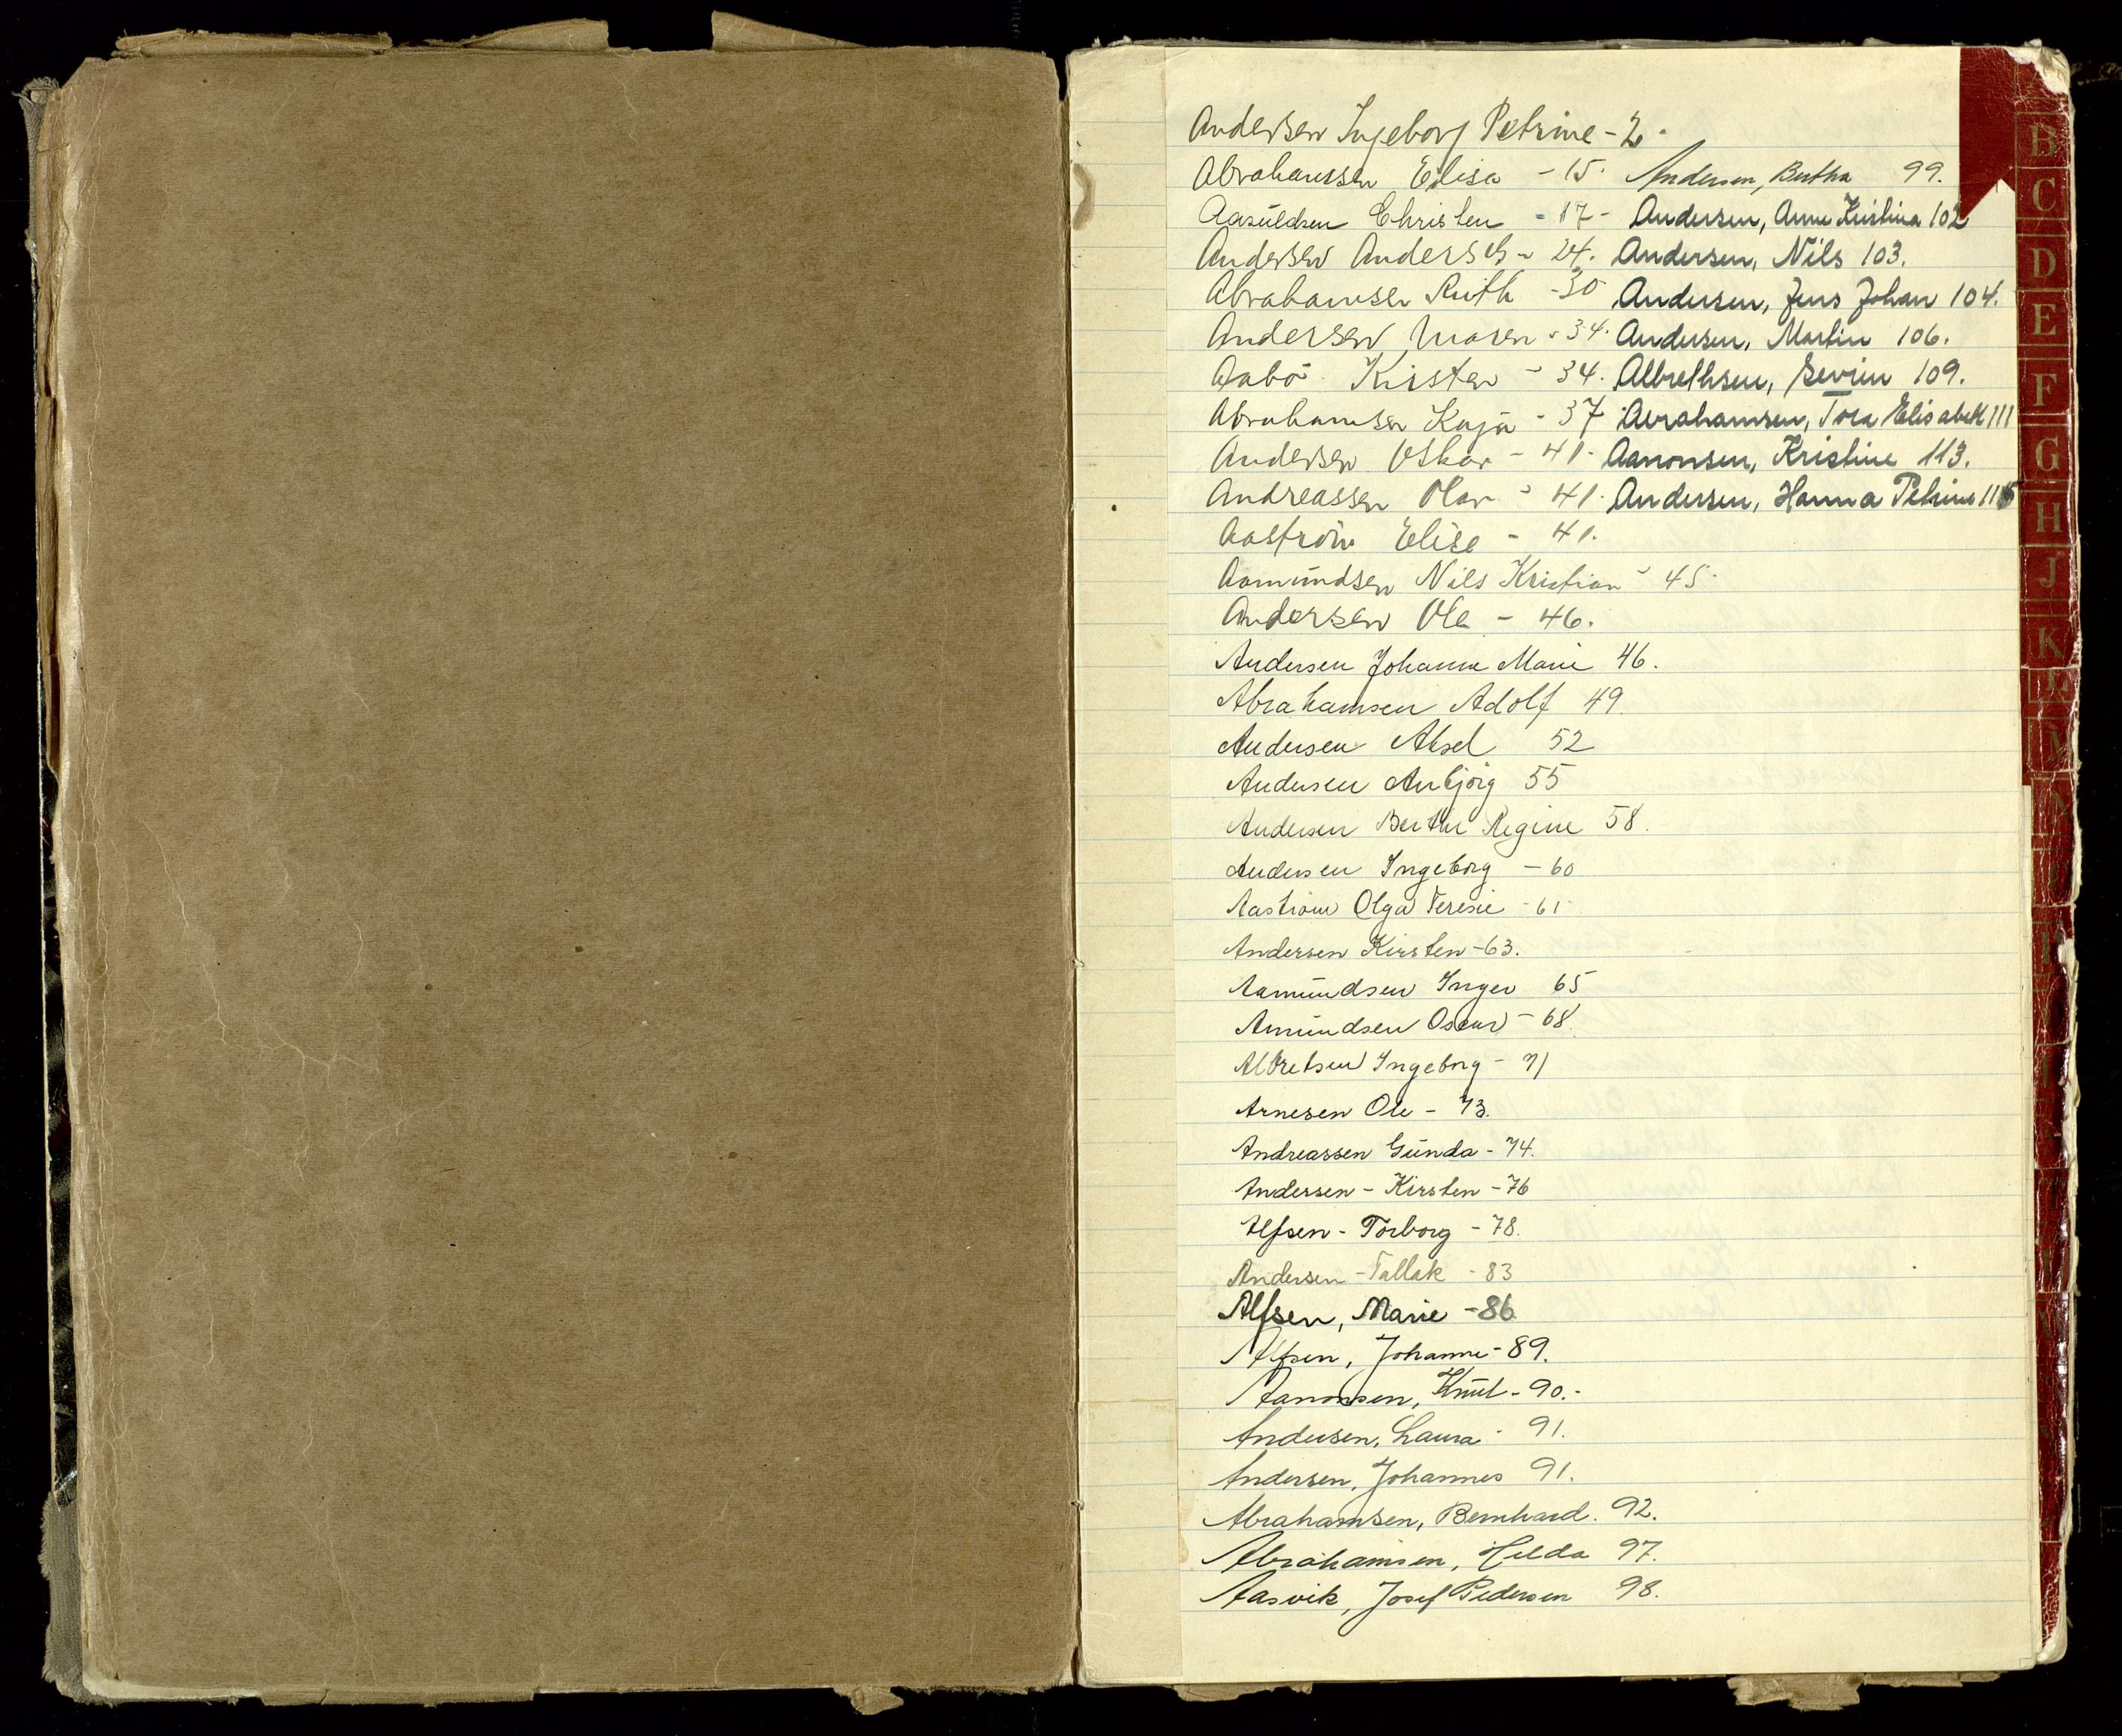 Andersen Ingeborg Petrine - 2.
Abrahamsen Elisa - 15.
Aasuldsen Christen - 17 -
Andersen Anders - 24.
Abrahamsen Ruth - 30
Andersen Maren - 34.
Aabö Kirsten - 34.
Abrahamsen Kaja - 37
Andersen Oskar - 41.
Andreassen Olav - 41.
Aaström Elise - 41.
Aamundsen Nils Kristian - 45.
Andersen Ole - 46.
Andersen Johanne Marie 46.
Abrahamsen Adolf 49
Andersen Aksel 52
Andersen Anbjörg 55
Andersen Berthe Regine 58.
Andersen Ingeborg - 60
Aaström Olga Teresie - 61
Andersen Kirsten - 63.
Aamundsen Inger 65
Amundsen Oscar - 68.
Albretsen Ingeborg - 71
Arnesen Ole - 73.
Andreassen Gunda - 74.
Andersen - Kirsten - 76
Alfsen - Torborg - 78.
Andersen - Tallak - 83
Alfsen, Marie - 86
Alfsen, Johanne - 89.
Aanonsen, Knut - 90. -
Andersen, Laura - 91.
Andersen, Johannes 91.
Abrahamsen, Bernhard. 92.
Abrahamsen, Hilda 97.
Aasvik, Josef Pedersen 98.
Andersen, Bertha 99.
Andersen, Anne Kristina 102
Andersen, Nils 103.
Andersen, Jens Johan 104.
Andersen, Martin 106.
Albrethsen, Sevrin 109.
Abrahamsen, Tora Elisabeth 111
Aanonsen, Kristine 113.
Andersen, Hanna Petrine 115
B
C
D
E
F
G
H
J
K
L
M
N